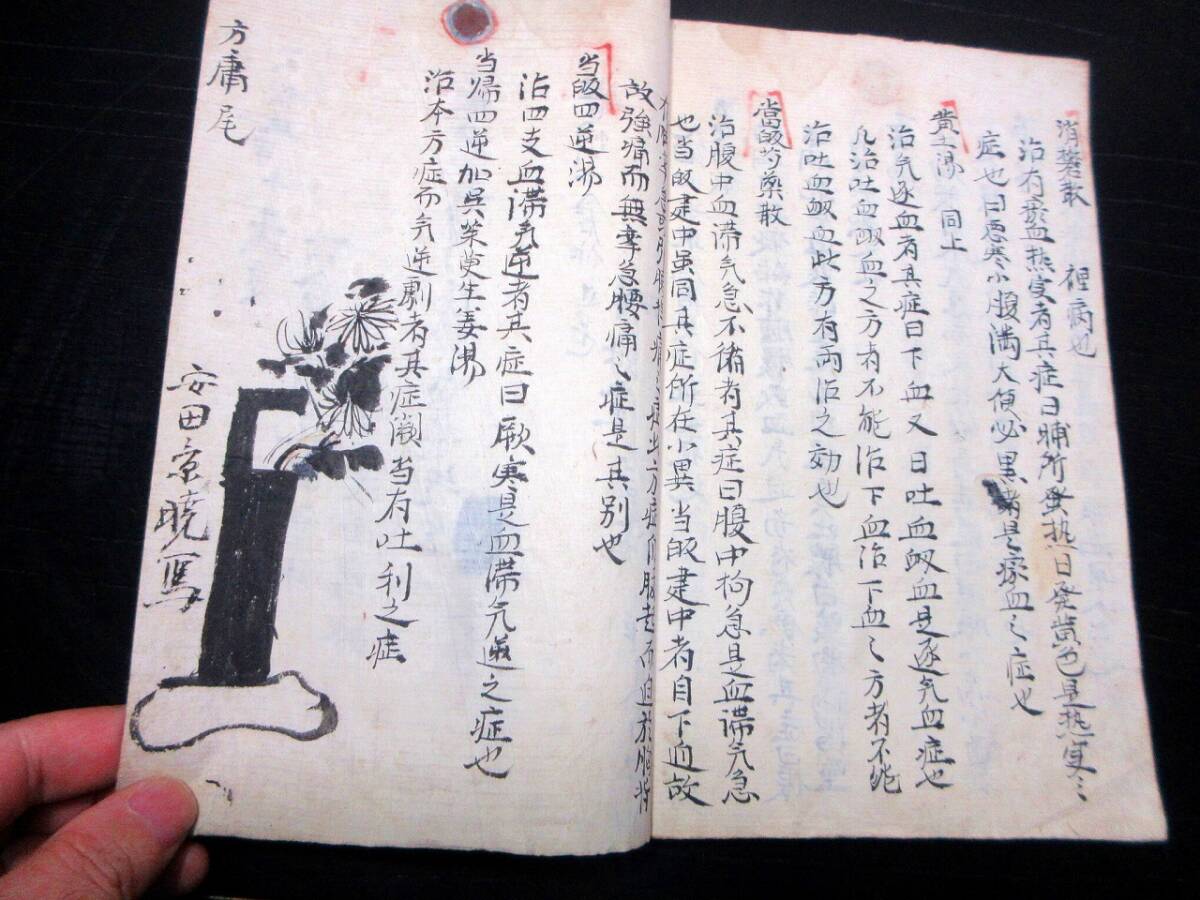 消礬散 裡病也
治有瘀血热实者其症曰晡所發热日發黄色是热実之
症也曰悪寒小腹満大便必黒者是瘀血之症也
黄土湯 同上
治气逐血者其症曰下血又曰吐血衂血是逐气血症也
凡治吐血衂血之方者不能治下血治下血之方者不能
治吐血衂血此方有兩治之効也
當皈芍薬散
治腹中血滞气急不循者其症曰腹中拘急是血滞气急
也当皈建中虽同其症所在小異当皈建中者自下迫故
故強痛而無拳急腰痛之症是其别也
当皈四逆湯
治四支血滞气逆者其症曰厥寒是血滞气逆之症也
当帰四逆加呉茱萸生姜湯
治本方症而气逆劇者其症闕当有吐利之症
方庸尾
安田京暁寫